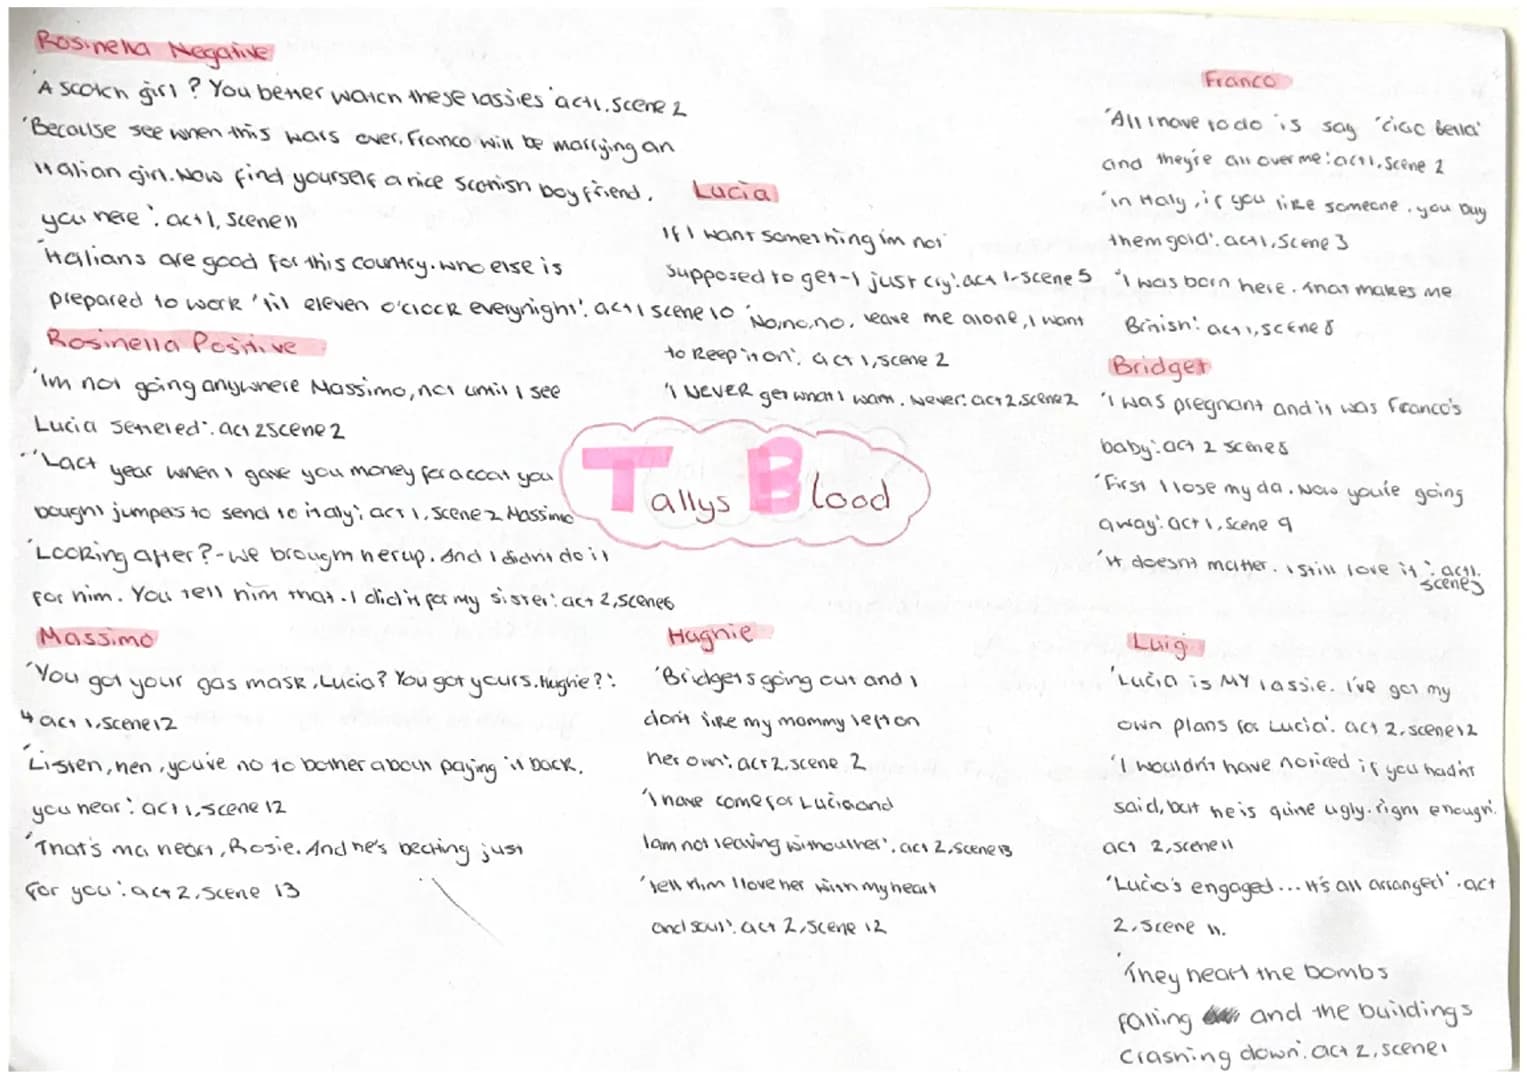 Rosinella Negative
'A scotch girl? You better watch these lassies' act1.scene 2
'Because see when this wars over. Franco will be marrying an
italian girl. Now find yourself a nice scottish boyfriend.
you here'. act 1, scene 11
'Italians are good for this country. who else is
prepared to work 'til eleven o'clock everynight'. act 1 scene 10
Rosinella Positive
'Im not going anywhere Massimo, not until I see
Lucia settered'. act 2 scene 2
'Last year when I gave you money for a coat you
bought jumpers to send to italy'; act 1, scene 2 Massimo
'Looking after?-we brought her up. And I didn't do it
for him. You tell him that. I did it for my sister'. act 2, scene 6
Massimo
'You got your gas mask, Lucia? You got yours. Hughie?'.
↳ act 1, scene 12
'Listen, hen, you've no to bother about paying it back,
you hear'. act 1, scene 12
'That's ma heart, Rosie. And he's beating just
for you'. act 2, scene 13
Lucia
'If I want something im not
supposed to get-I just cry'. act 1-scene 5
'No,no,no. leave me alone, I want
to keep it on'. act 1, scene 2
'I NEVER get what I want. Never'. act 2 scene 2
Tallys Blood
Hughie
'Bridget's going out and I
don't like my mammy left on
her own'. act 2, scene 2
'I have come for Lucia and
I am not leaving without her'. act 2, scene 13
'Tell him I love her with my heart
and soul'. act 2, scene 12
Franco
'All I have to do is say 'ciao bella'
and they're all over me'. act 1, scene 2
'in Italy, if you like someone, you buy
them gold'. act 1, scene 3
'I was born here. that makes me
British'. act 1, scene 8
Bridget
'I was pregnant and it was Franco's
baby'. act 2 scene 8
'First I lose my da. Now you're going
away'. act 1, scene 9
'it doesnt matter. I still love it'. act 1.
scene 3
Luigi
'Lucia is MY lassie. I've got my
own plans for Lucia'. act 2, scene 12
'I wouldn't have noticed if you hadn't
said, but he is quite ugly. right enough'.
act 2, scene 11
'Lucia's engaged... it's all arranged'. act
2, scene 11.
'They heart the bombs
falling and the buildings
crashing down'. act 2, scene 1